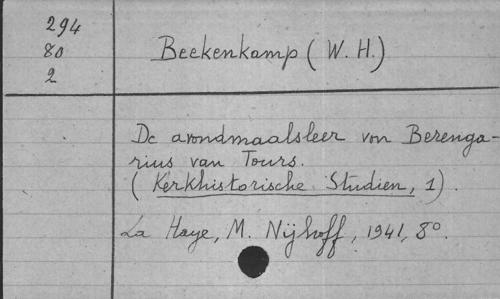 294
80
2
Beekenkamp (W. H.)
De avondmaalsleer von Berenga-
rius van Tours.
(Kerkhistorische Studien, 1).
La Haye, M. Nijhoff, 1941, 8°.